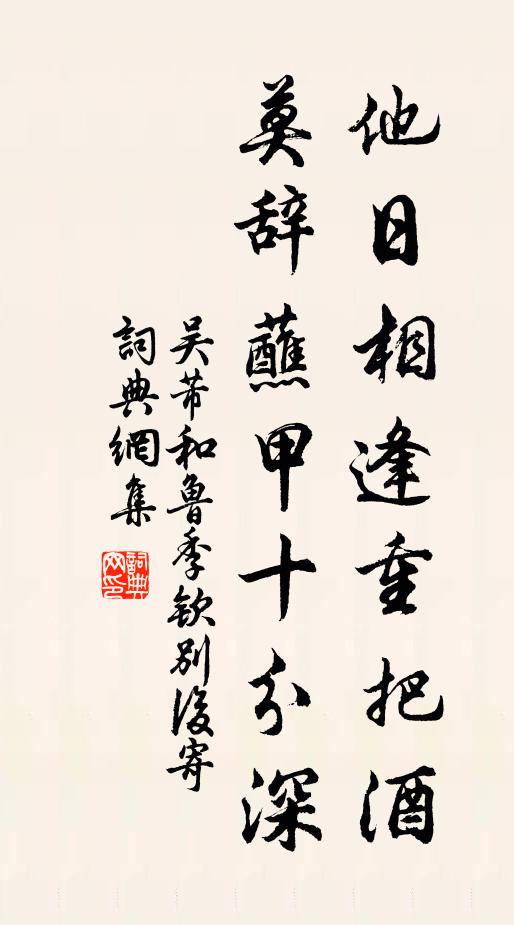 他日相逢重把酒
莫辞蘸甲十分深
吴芾和魯季欽别後寄
詞典網集
詞典网印